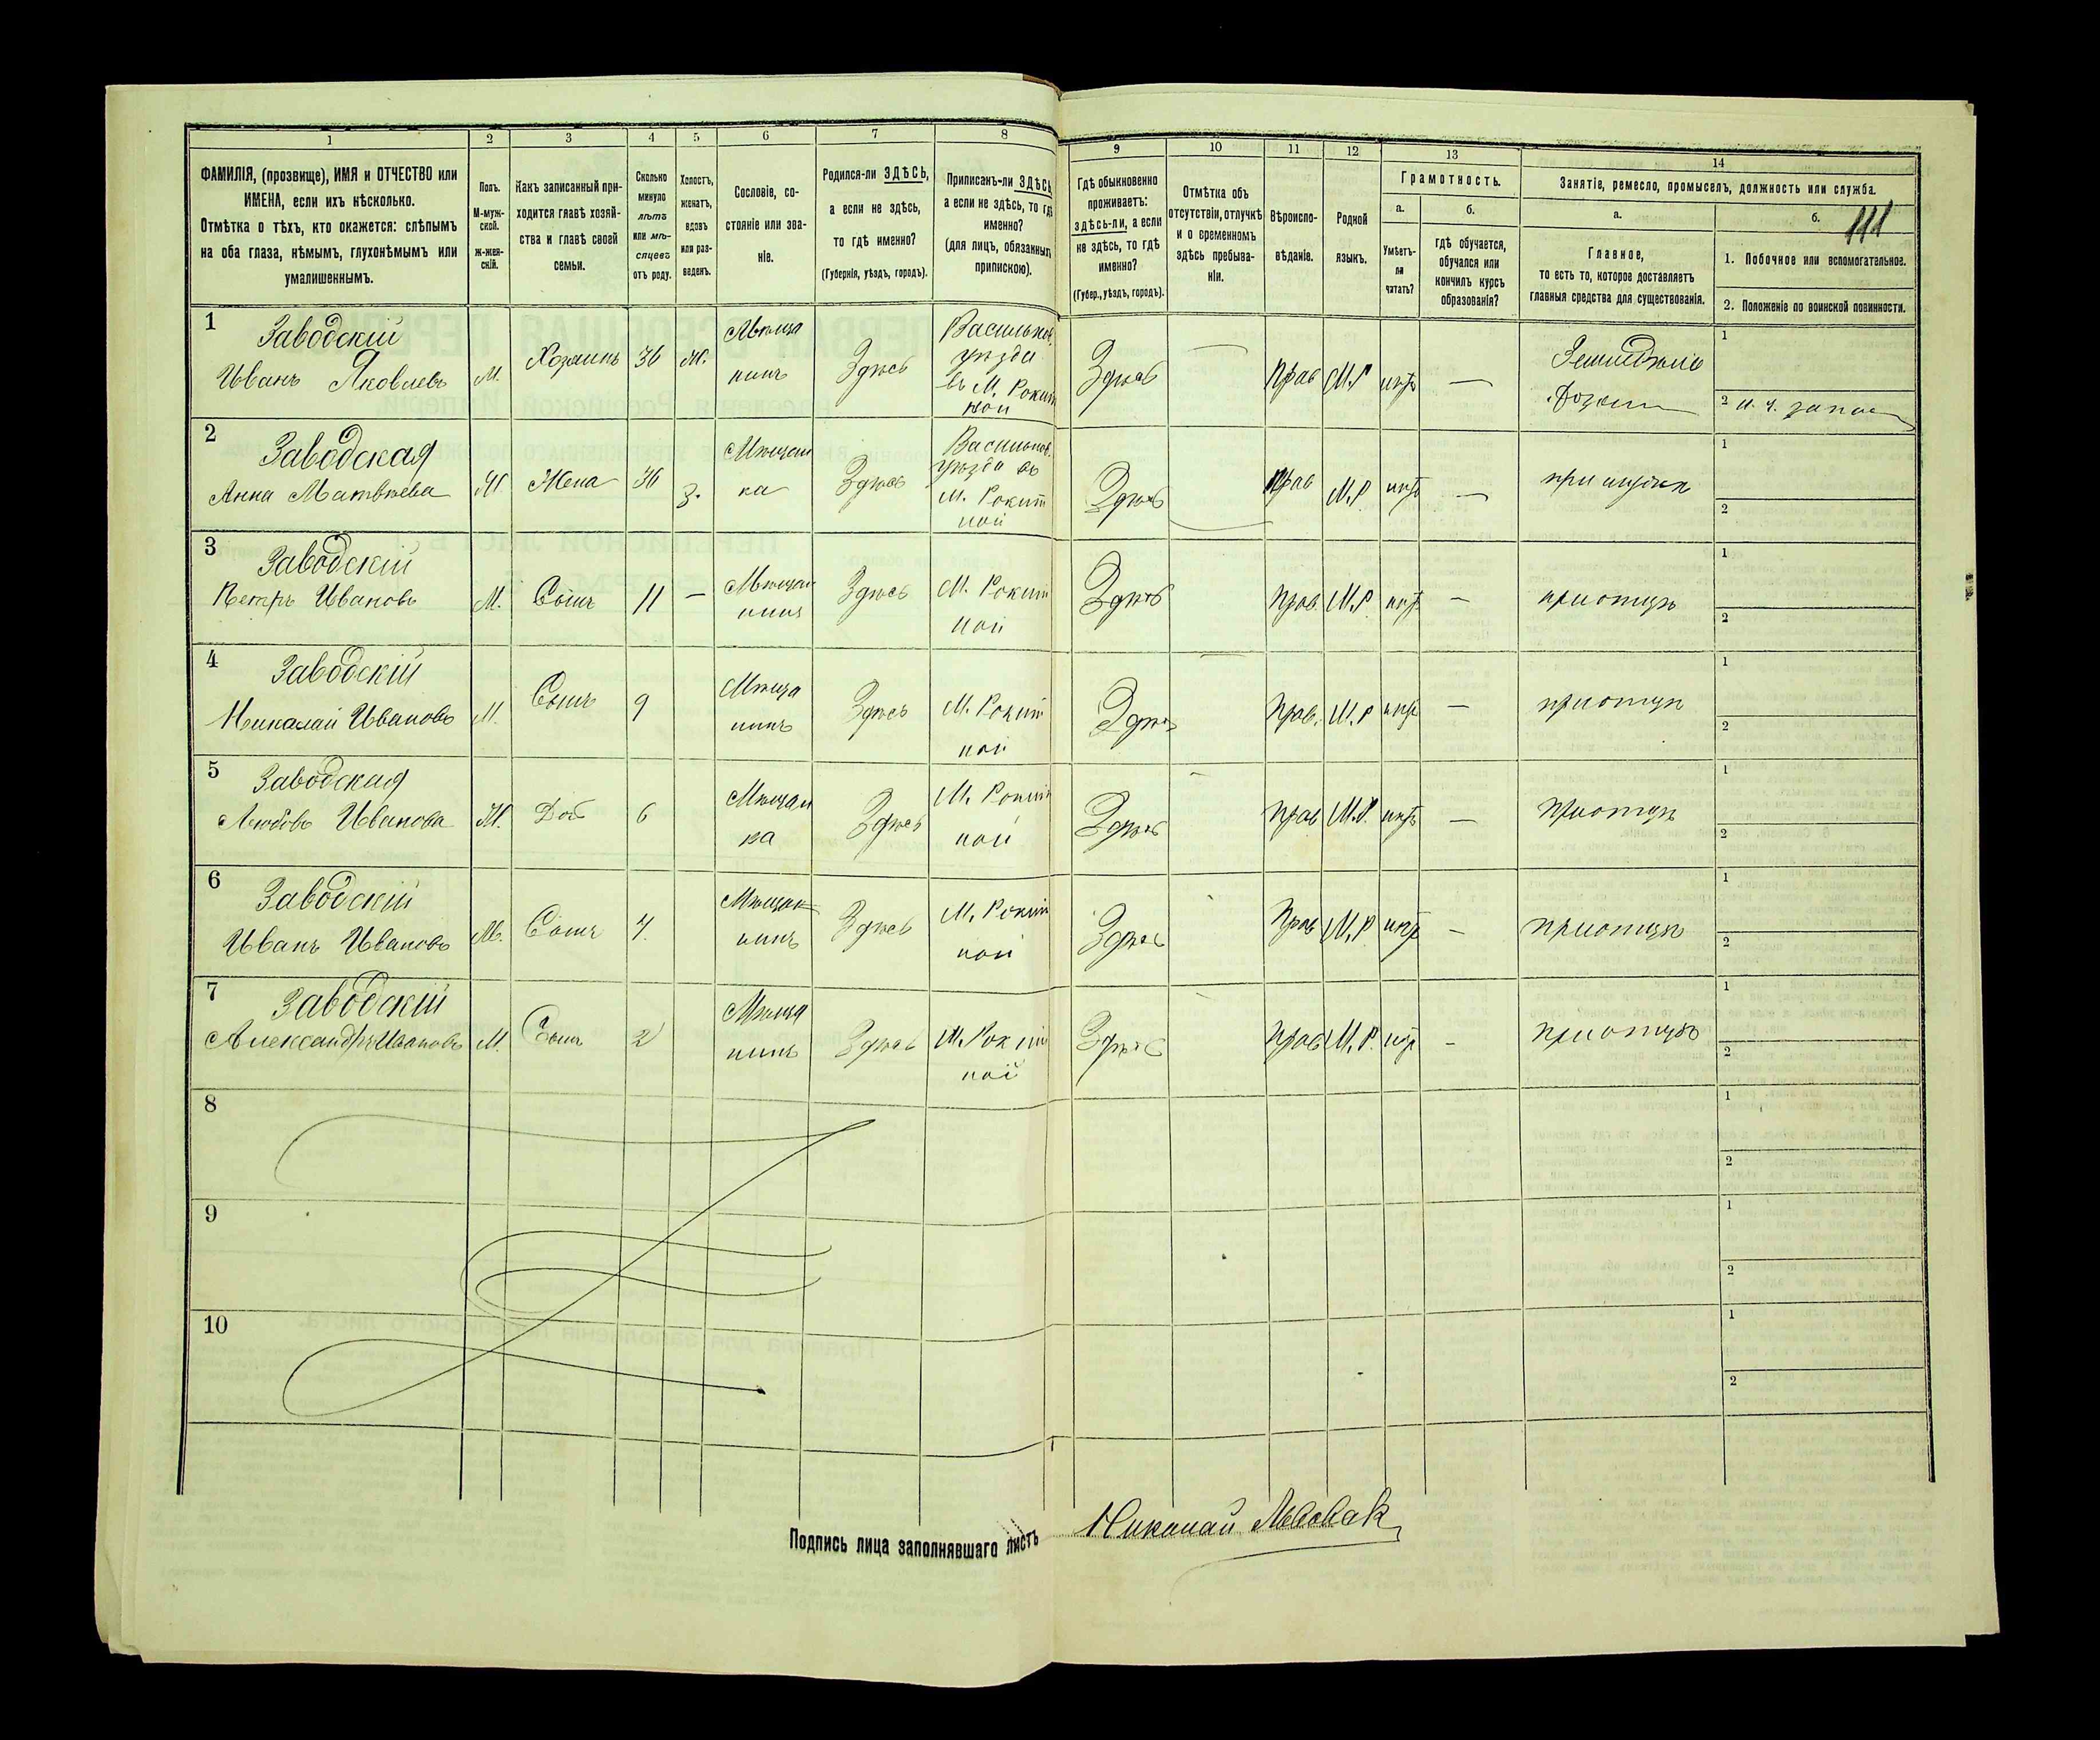 1 2 3 4 5 6 7 8
ФАМИЛІЯ, (прозвище), ИМЯ и ОТЧЕСТВО или
ИМЕНА, если ихъ нѣсколько.
Отмѣтка о тѣхъ, кто окажется: слѣпымъ
на оба глаза, нѣмымъ, глухонѣмымъ или
умалишеннымъ.
Полъ.
М-муж-
ской.
Ж-жен-
скій.
Какъ записанный при-
ходится главѣ хозяй-
ства и главѣ своей
семьи.
Сколько
минуло
лѣтъ
или мѣ-
сяцевъ
отъ роду.
Холостъ,
женатъ,
вдовъ
или раз-
веденъ.
Сословіе, со-
стояніе или зва-
ніе.
Родился-ли ЗДѢСЬ,
а если не здѣсь,
то гдѣ именно?
(Губернія, уѣздъ, городъ).
Приписанъ-ли ЗДѢСЬ
а если не здѣсь, то гдѣ
именно?
(для лицъ, обязанныхъ
припискою).
9 10 11 12 13 14
Гдѣ обыкновенно
проживаетъ:
здѣсь-ли, а если
не здѣсь, то гдѣ
именно?
(Губер., уѣздъ, городъ).
Отмѣтка объ
отсутствіи, отлучкѣ
и о временномъ
здѣсь пребыва-
ніи.
Вѣроиспо-
вѣданіе.
Родной
языкъ.
Грамотность.
а.
Умѣетъ-
ли
читать?
б.
гдѣ обучается,
обучался или
кончилъ курсъ
образованія?
Занятіе, ремесло, промыселъ, должность или служба.
а.
Главное,
то есть то, которое доставляетъ
главныя средства для существованія.
б.
111
1. Побочное или вспомогательное.
2. Положеніе по воинской повинности.
1
Заводскій
Иванъ Яковлевъ
М.
Хозяинъ
36
Ж.
Мѣща
нинъ
Здѣсь
Васильков.
уѣзда
въ М. Рокит
ной
Здѣсь
Прав
М.Р
нѣтъ
—
1
2
2
Заводская
Анна Матвѣева
Ж
Жена
36
З.
Мѣщан
ка
Здѣсь
Васильков.
уѣзда въ
М. Рокит
ной
Здѣсь
Прав
М.Р.
нѣтъ
—
при мужѣ
1
2
3
Заводскій
Петръ Ивановъ
М.
Сынъ
11
—
Мѣщан
нинъ
Здѣсь
М. Рокит
ной
Здѣсь
Прав.
М.Р
нѣтъ
—
при отцѣ
1
2
4
Заводскій
Николай Ивановъ
М.
Сынъ
9
Мѣща
нинъ
Здѣсь
М. Рокит
ной
Здѣсь
Прав.
М.Р
нѣтъ
—
при отцѣ
1
2
5
Заводская
Любовь Иванова
Ж.
Доч
6
Мѣщан
ка
Здѣсь
М. Рокит
ной
Здѣсь
Прав
М.Р.
нѣтъ
—
при отцѣ
1
2
6
Заводскій
Иванъ Ивановъ
М.
Сынъ
4.
Мѣщан
нинъ
Здѣсь
М. Рокит
ной
Здѣсь
Прав
М.Р
нѣтъ
—
при отцѣ
1
2
7
Заводскій
Александръ Ивановъ
М.
Сынъ
2
Мѣща
нинъ
Здѣсь
М. Рокит
ной
Здѣсь
Прав
М.Р.
нѣтъ
-
при отцѣ
1
2
8
1
2
9
1
2
10
1
2
Подпись лица заполнявшаго листъ Николай